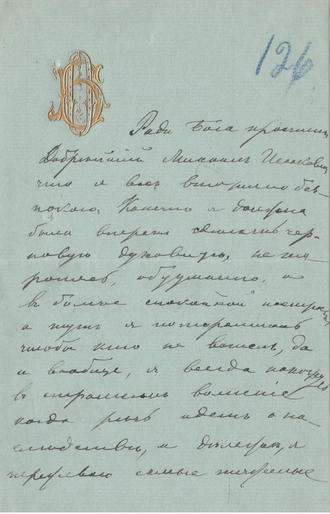 126
Ради Бога простите
Добрѣйшій Михаилъ Исаковичъ
что я Васъ вторично без-
покою. Конечно я должна
была впередъ сдѣлать чер-
новую духовную, не то-
ропясь, обдуманно, и
въ болѣе спокойной
а тутъ я торопилась
чтобы кто не вошелъ, да
и вообще, я всегда нахожусь
въ страшномъ волненіи
когда рѣчь идетъ о на-
слѣдствѣ, и дѣлежѣ, я
самые